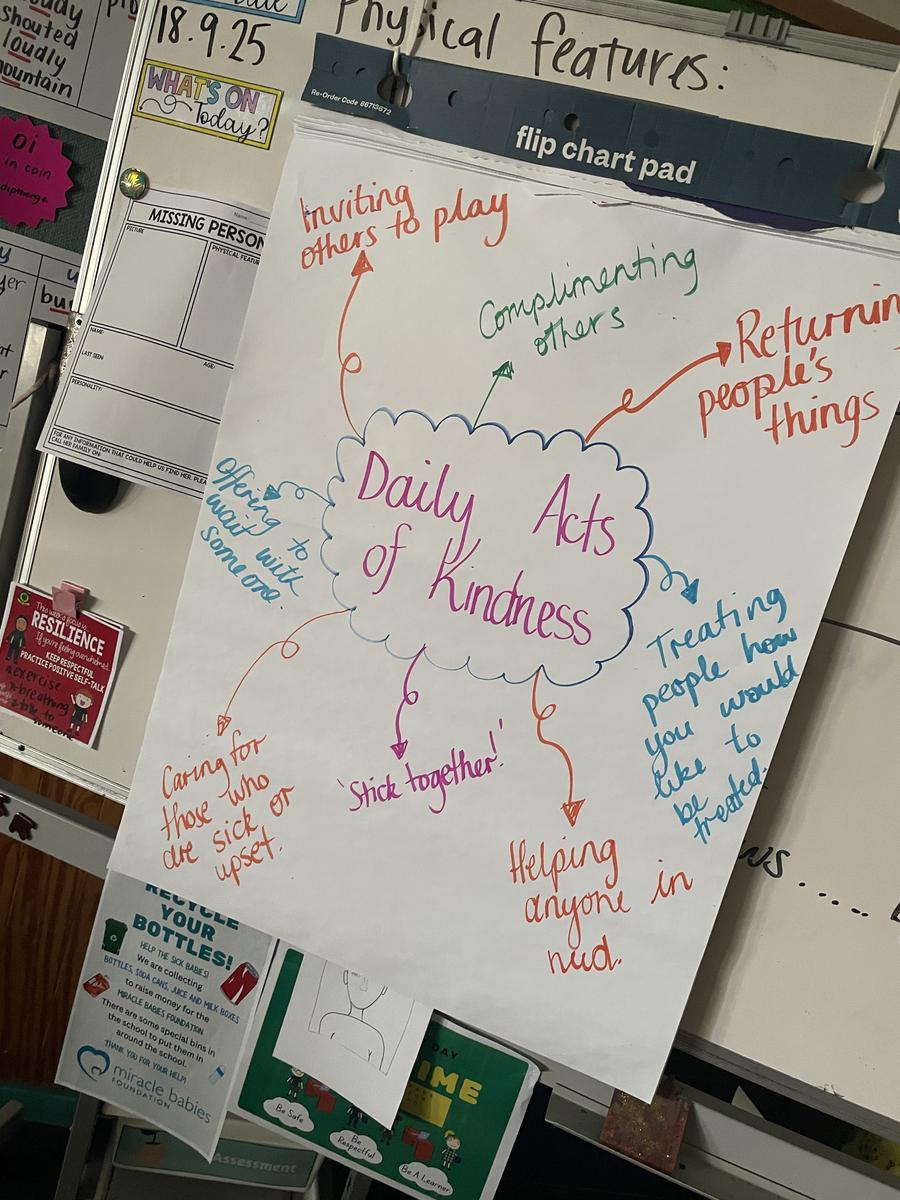 18.9.25
Physical features:
WHAT'S ON
Today?
Re-Order Code 86713872
flip chart pad
shouted
loudly
mountain
oi
in coin
MISSING PERSON
PICTURE
NAME:
LAST SEEN:
AGE:
PERSONALITY:
FOR ANY INFORMATION THAT COULD HELP US FIND HER, PLEA
CALL HER FAMILY ON:
Inviting
others to play
Complimenting
others
Returnin
people's
things
Daily Acts
of Kindness
Offering to
wait with
someone.
Treating
people how
you would
like to
be
treated.
Caring for
those who
are sick or
upset.
'Stick together!'
Helping
anyone in
need.
This week's focus is
RESILIENCE
If you're feeling overwhelmed,
KEEP RESPECTFUL
PRACTICE POSITIVE SELF-TALK
exercise
breathing
talk to
someone
RECYCLE
YOUR
BOTTLES!
HELP THE SICK BABIES!
We are collecting
BOTTLES, SODA CANS, JUICE AND MILK BOXES
to raise money for the
MIRACLE BABIES FOUNDATION
There are some special bins in
the school to put them in
around the school.
THANK YOU FOR YOUR HELP!
miracle babies
FOUNDATION
DAY
TIME
Be Safe
Be
Respectful
Be A Learner
Assessment